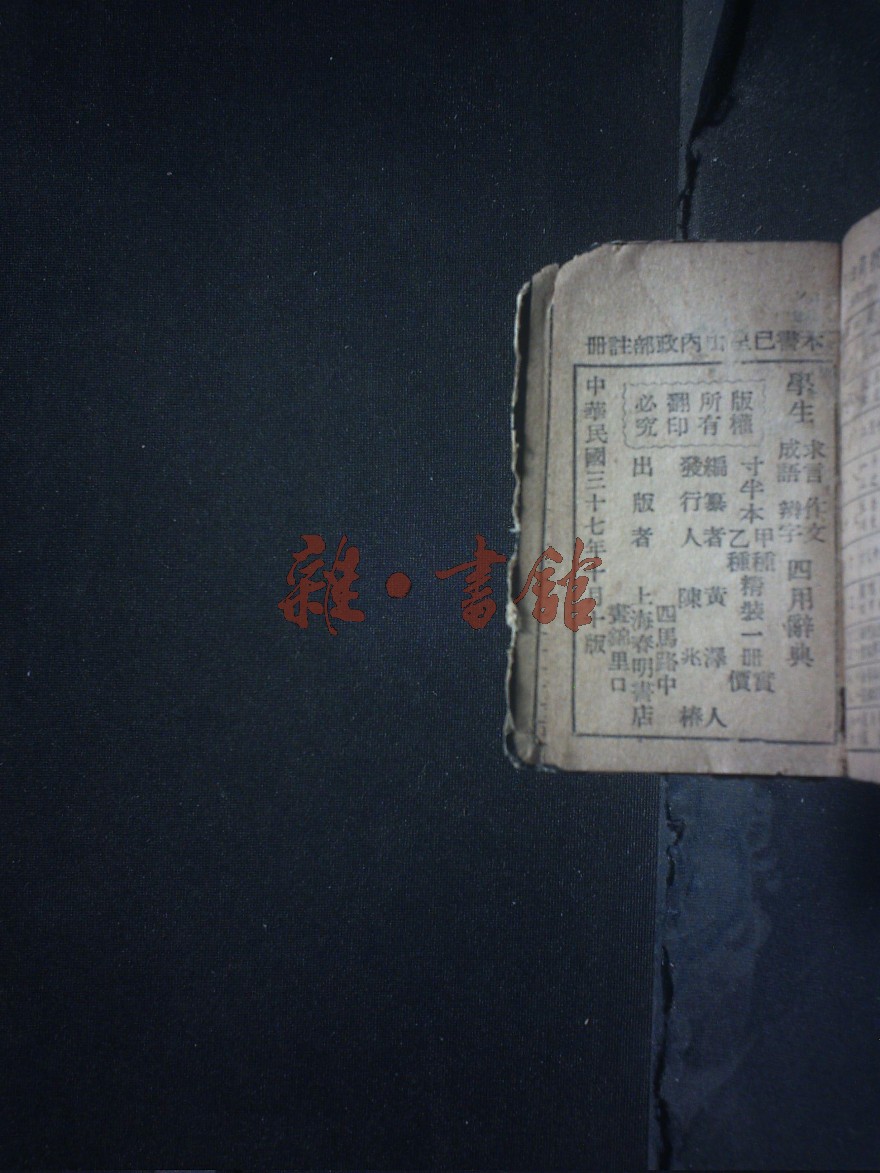 本書已呈內政部註冊
學生
求言 作文
成語 辨字
四用辭典
寸半本
甲種
乙種
精裝一冊
實價
版權所有
翻印必究
編纂者 黃澤人
發行人 陳兆椿
出版者 上海春明書店
四馬路中
畫錦里口
中華民國三十七年十月一版
雜·書館